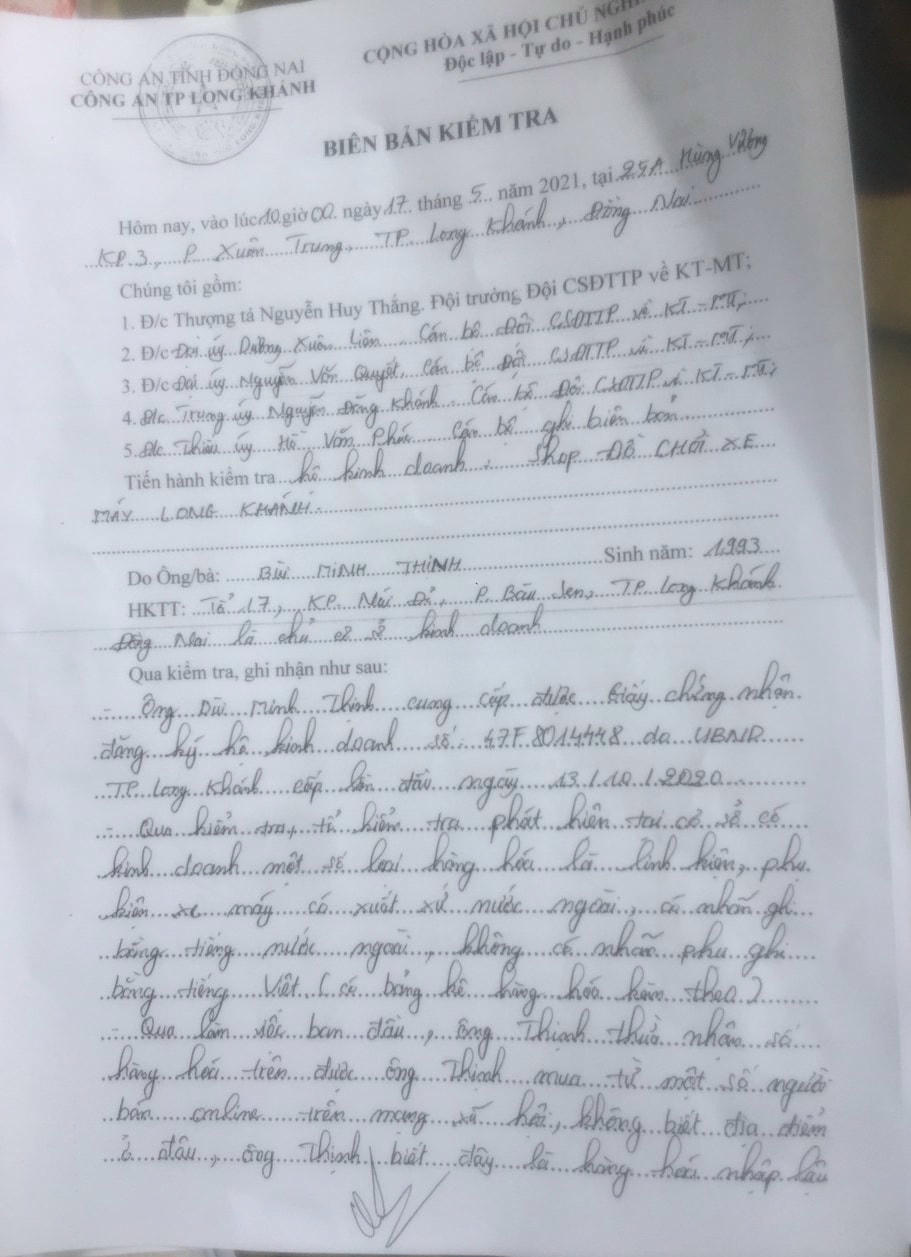 CÔNG AN TỈNH ĐỒNG NAI
CÔNG AN TP LONG KHÁNH
CỘNG HÒA XÃ HỘI CHỦ NGHĨA
Độc lập - Tự do - Hạnh phúc
BIÊN BẢN KIỂM TRA
Hôm nay, vào lúc 10 giờ 00 ngày 17 tháng 5 năm 2021, tại Hùng Vương
KP.3, P Xuân Trung, TP. Long Khánh, Đồng Nai.
Chúng tôi gồm:
1. Đ/c Thượng tá Nguyễn Huy Thắng. Đội trưởng Đội CSĐTTP về KT-MT;
2. Đ/c Đại úy Dương Xuân Liên, Cán bộ Đội CSĐTTP về KT-MT;
3. Đ/c Đại úy Nguyễn Văn Quyết, Cán bộ Đội CSĐTTP về KT-MT;
4. Đ/c Trung úy Nguyễn Đăng Khánh. Cán bộ Đội CSĐTTP về KT-MT;
5. Đ/c Thiếu úy Hồ Văn Phúc Cán bộ ghi biên bản
Tiến hành kiểm tra hộ kinh doanh: Shop ĐỒ CHƠI XE
MÁY LONG KHÁNH.
Do Ông/bà: BÙI MINH THỊNH Sinh năm: 1993
HKTT: Tổ 17, KP. Núi Đỏ, P. Bàu Sen, TP. Long Khánh
Đồng Nai là chủ cơ sở kinh doanh
Qua kiểm tra, ghi nhận như sau:
- Ông Minh Thịnh cung cấp được Giấy chứng nhận
đăng ký hộ kinh doanh số: 47F8014448 do UBND
TP. Long Khánh cấp lần đầu ngày 13/10/2020
- Qua kiểm tra, tổ kiểm tra phát hiện tại cơ sở có
kinh doanh một số loại hàng hóa là linh kiện, phụ
kiện xe máy có xuất xứ nước ngoài, có nhãn ghi
bằng tiếng nước ngoài, không có nhãn phụ ghi
bằng tiếng Việt (có bảng kê hàng hóa kèm theo)
- Qua làm việc ban đầu, ông Thịnh thừa nhận số
hàng hóa trên được ông Thịnh mua từ một số người
bán online trên mạng xã hội, không biết địa điểm
ở đâu, ông Thịnh biết đây là hàng hóa nhập lậu